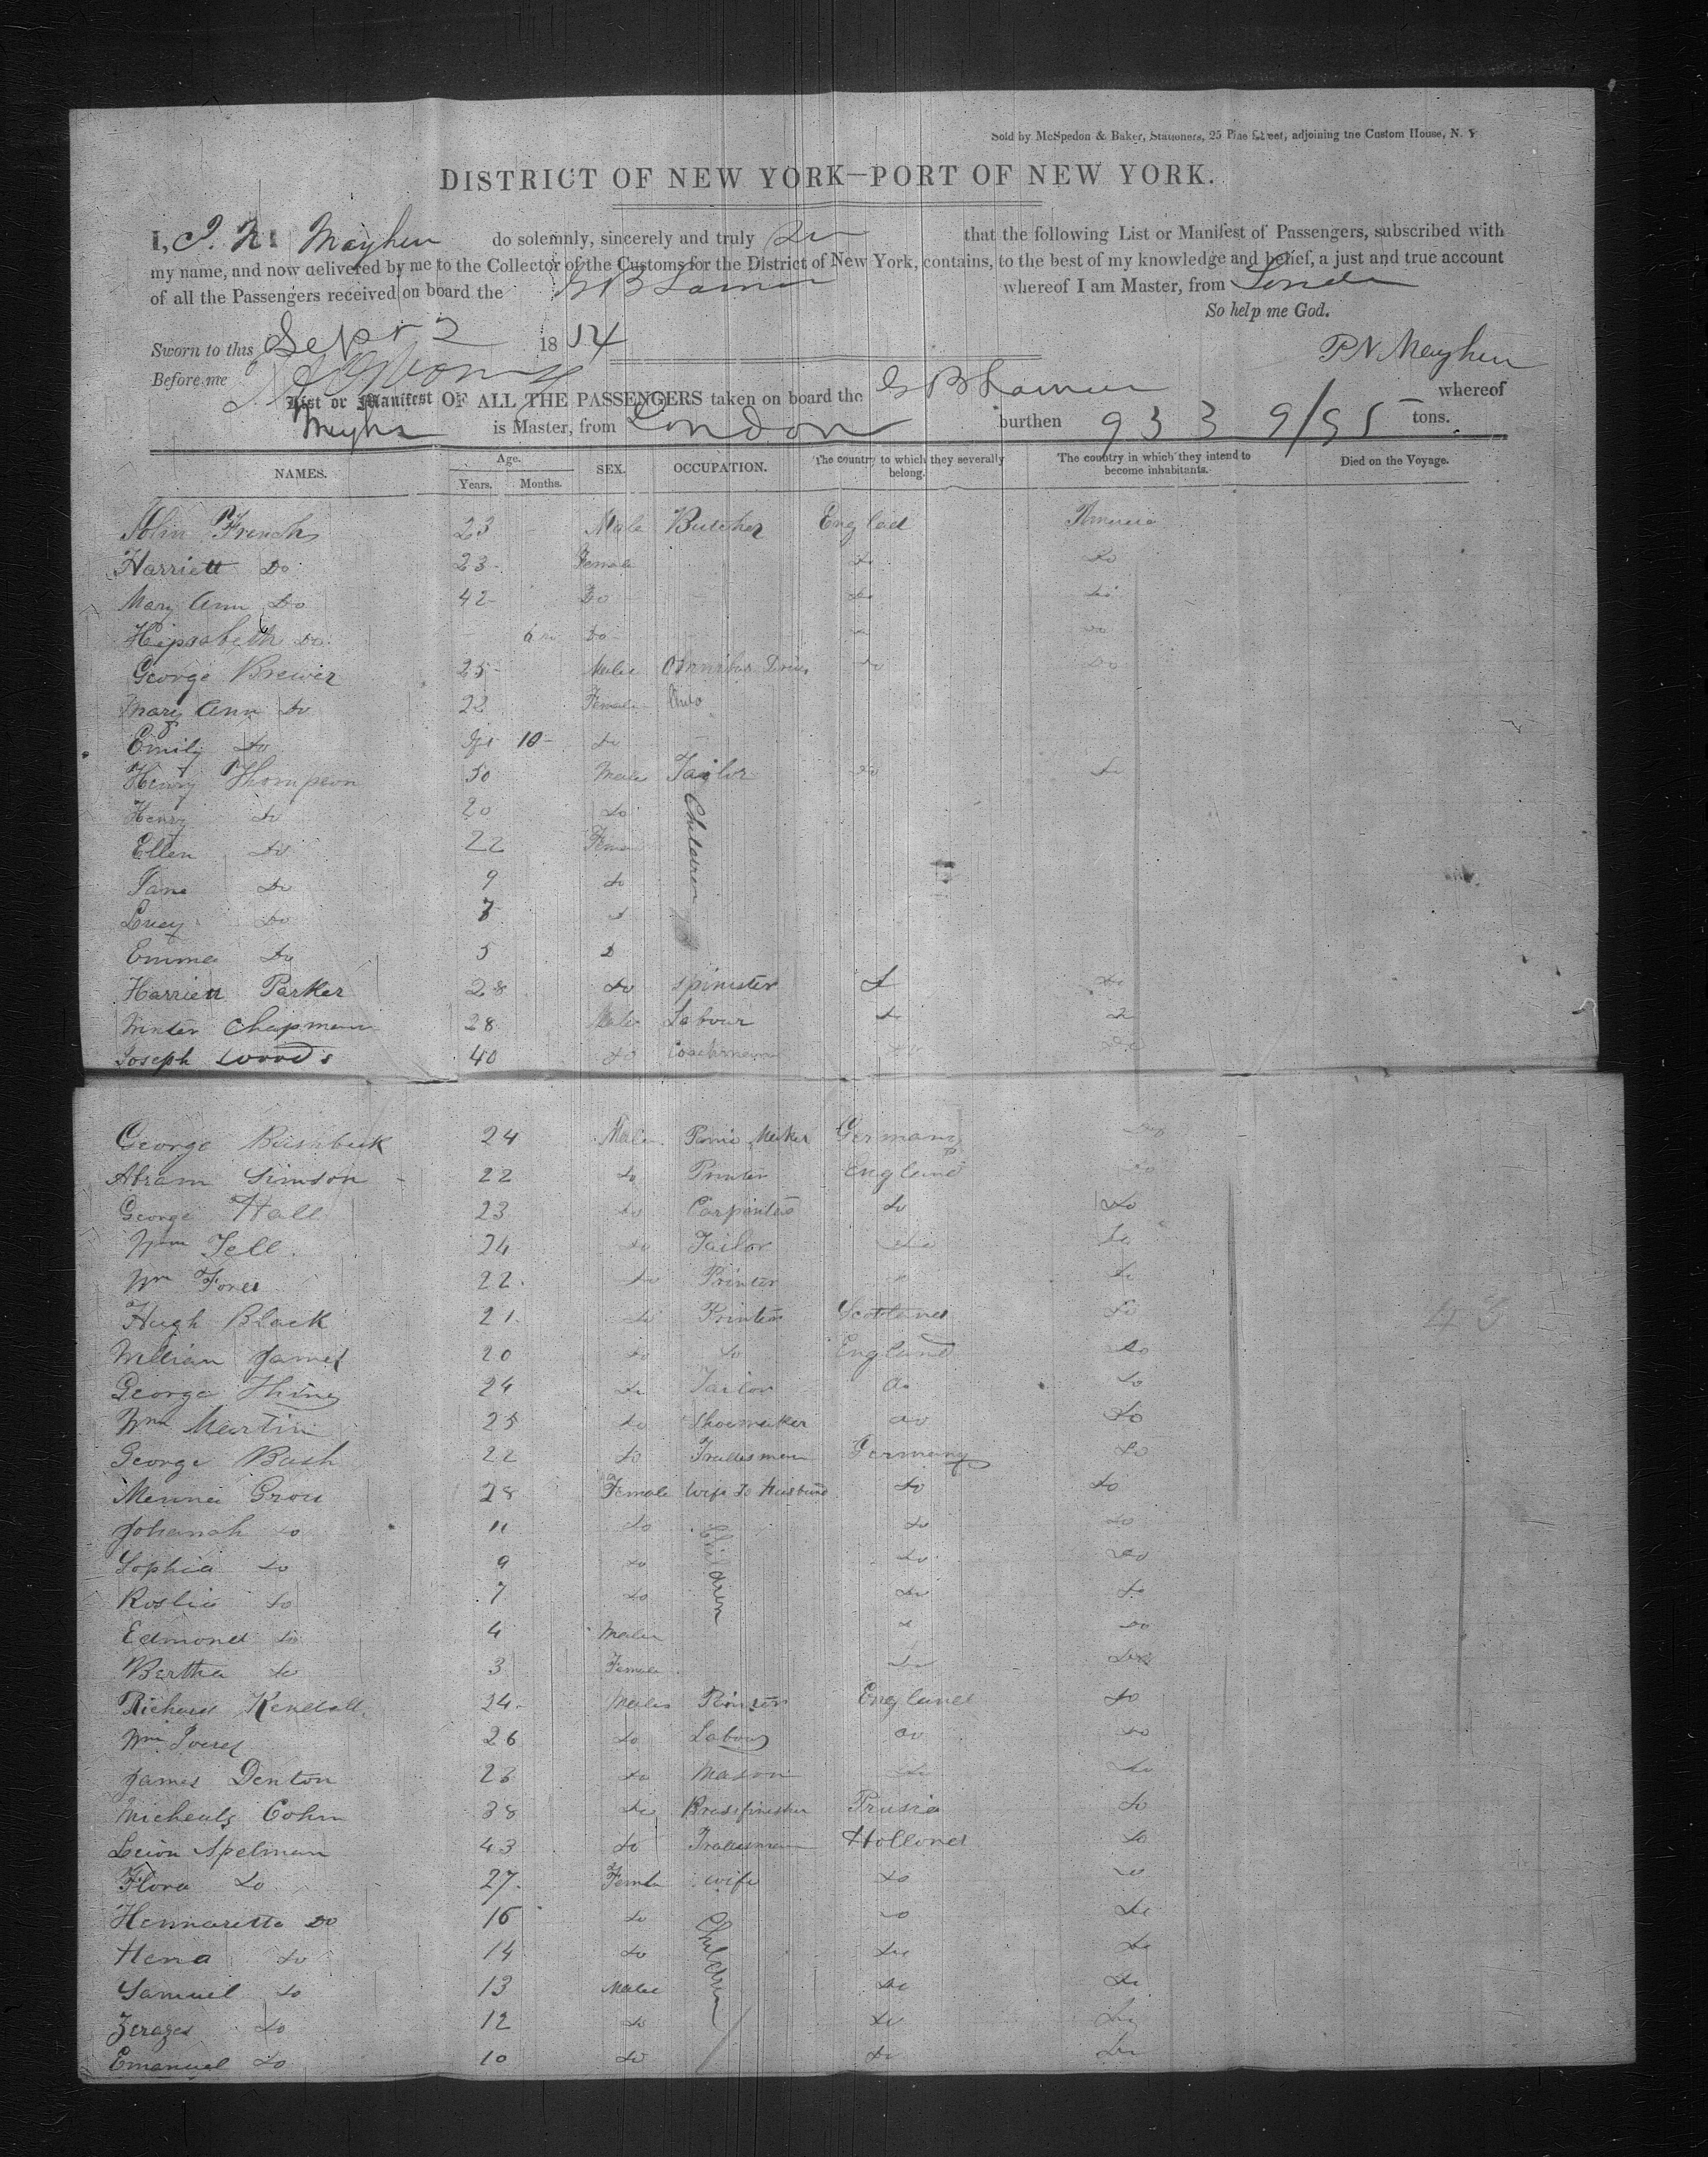 Sold by McSpedon & Baker, Stationers, 25 Pine Street, adjoining the Custom House, N. Y
DISTRICT OF NEW YORK—PORT OF NEW YORK.
I, P. N. Mayhew do solemnly, sincerely and truly that the following List or Manifest of Passengers, subscribed with
my name, and now delivered by me to the Collector of the Customs for the District of New York, contains, to the best of my knowledge and belief, a just and true account
of all the Passengers received on board the G B Lamar whereof I am Master, from London
So help me God.
Sworn to this Sept 2 1854
P N Mayhew
Before me
List or Manifest OF ALL THE PASSENGERS taken on board the G B Lamar whereof
Mayhew is Master, from London burthen 933 9/95 tons.
NAMES. Age. Years. Months. SEX. OCCUPATION. The country to which they severally belong. The country in which they intend to become inhabitants. Died on the Voyage.
John French 23 Male Butcher Englad America
Harriett Do 23 Female Do Do
Mary Ann Do 42 Do Do Do
Hepsabeth Do 6 m Do Do Do
George Brewer 25 Male Omnibus Driver Do Do
Mary Ann Do 22 Female
Emily Do 10 Do
Henry Thompson 50 Male Tailor Do Do
Henry Do 20 Do Children
Ellen Do 22 Fema
Jane Do 9 Do
Lucy Do 7 Do
Emma Do 5 D
Harriett Parker 28 Do Spinister Do Do
Winter Chapman 28 Male Labour Do Do
Joseph Woods 40 Do Coachman Do Do
George Bushbeck 24 Male Maker Germany Do
Abram Simson 22 Do Printer England Do
George Hall 23 Do Carpinter Do Do
Wm Tell 24 Do Tailor Do Do
Wm 22 Do Printer Do
Hugh Black 21 Do Printer Scotland Do
William James 20 Do Do England Do
George Thing 24 Do Tailor Do Do
Wm Martin 25 Do Shoemaker Do Do
George Bush 22 Do Tradesman Germany Do
Menna Grou 28 Female Wife To Husband Do Do
Johanah Do 11 Do Children Do Do
Sophia Do 9 Do Do Do
Roslie Do 7 Do Do Do
Edmond Do 4 Male Do Do
Bertha Do 3 Female Do Do
Richard Kendall 24 Male Printer England Do
Wm 26 Do Labour Do Do
James Denton 23 Do Mason Do Do
Cohn 38 Do Brassfinisher Prusia Do
Leion Spelman 43 Do Tradesman Hollond Do
Flora Do 27 Femle wife Do Do
Hennaretta Do 16 Do Children Do Do
Hena Do 14 Do Do Do
Samuel Do 13 Male Do Do
Do 12 Do Do Do
Emanuel Do 10 Do Do Do